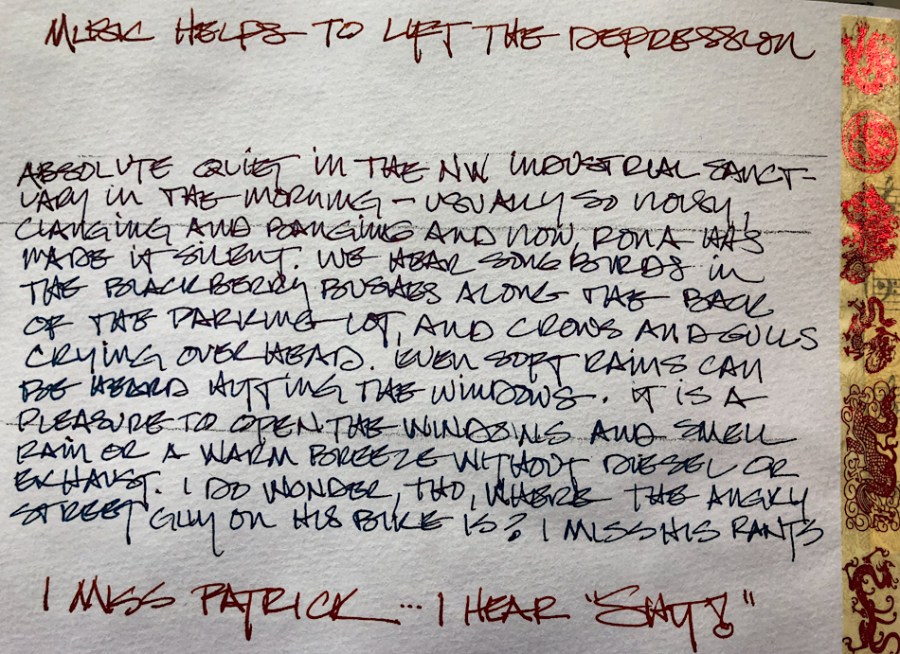 MUSIC HELPS TO LIFT THE DEPRESSION
ABSOLUTE QUIET IN THE NW INDUSTRIAL SANCT-
UARY IN THE MORNING - USUALLY SO NOISY,
CLANGING AND BANGING AND NOW, RONA HAS
MADE IT SILENT. WE HEAR SONG BIRDS IN
THE BLACKBERRY BUSHES ALONG THE BACK
OF THE PARKING LOT, AND CROWS AND GULLS
CRYING OVER HEAD. EVEN SOFT RAINS CAN
BE HEARD HITTING THE WINDOWS. IT IS A
PLEASURE TO OPEN THE WINDOWS AND SMELL
RAIN OR A WARM BREEZE WITHOUT DIESEL OR
EXHAUST. I DO WONDER, THO, WHERE THE ANGRY
STREET GUY ON HIS BIKE IS? I MISS HIS RANTS
I MISS PATRICK ... I HEAR "